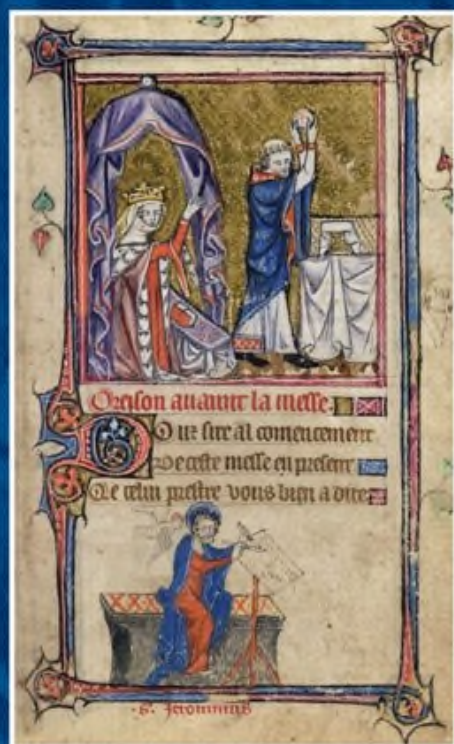 Oreison auaunt la messe.
Douz sire al comencement
De ceste messe en present
Qe celui prestre vous bien a dire
·S· Jeronimus